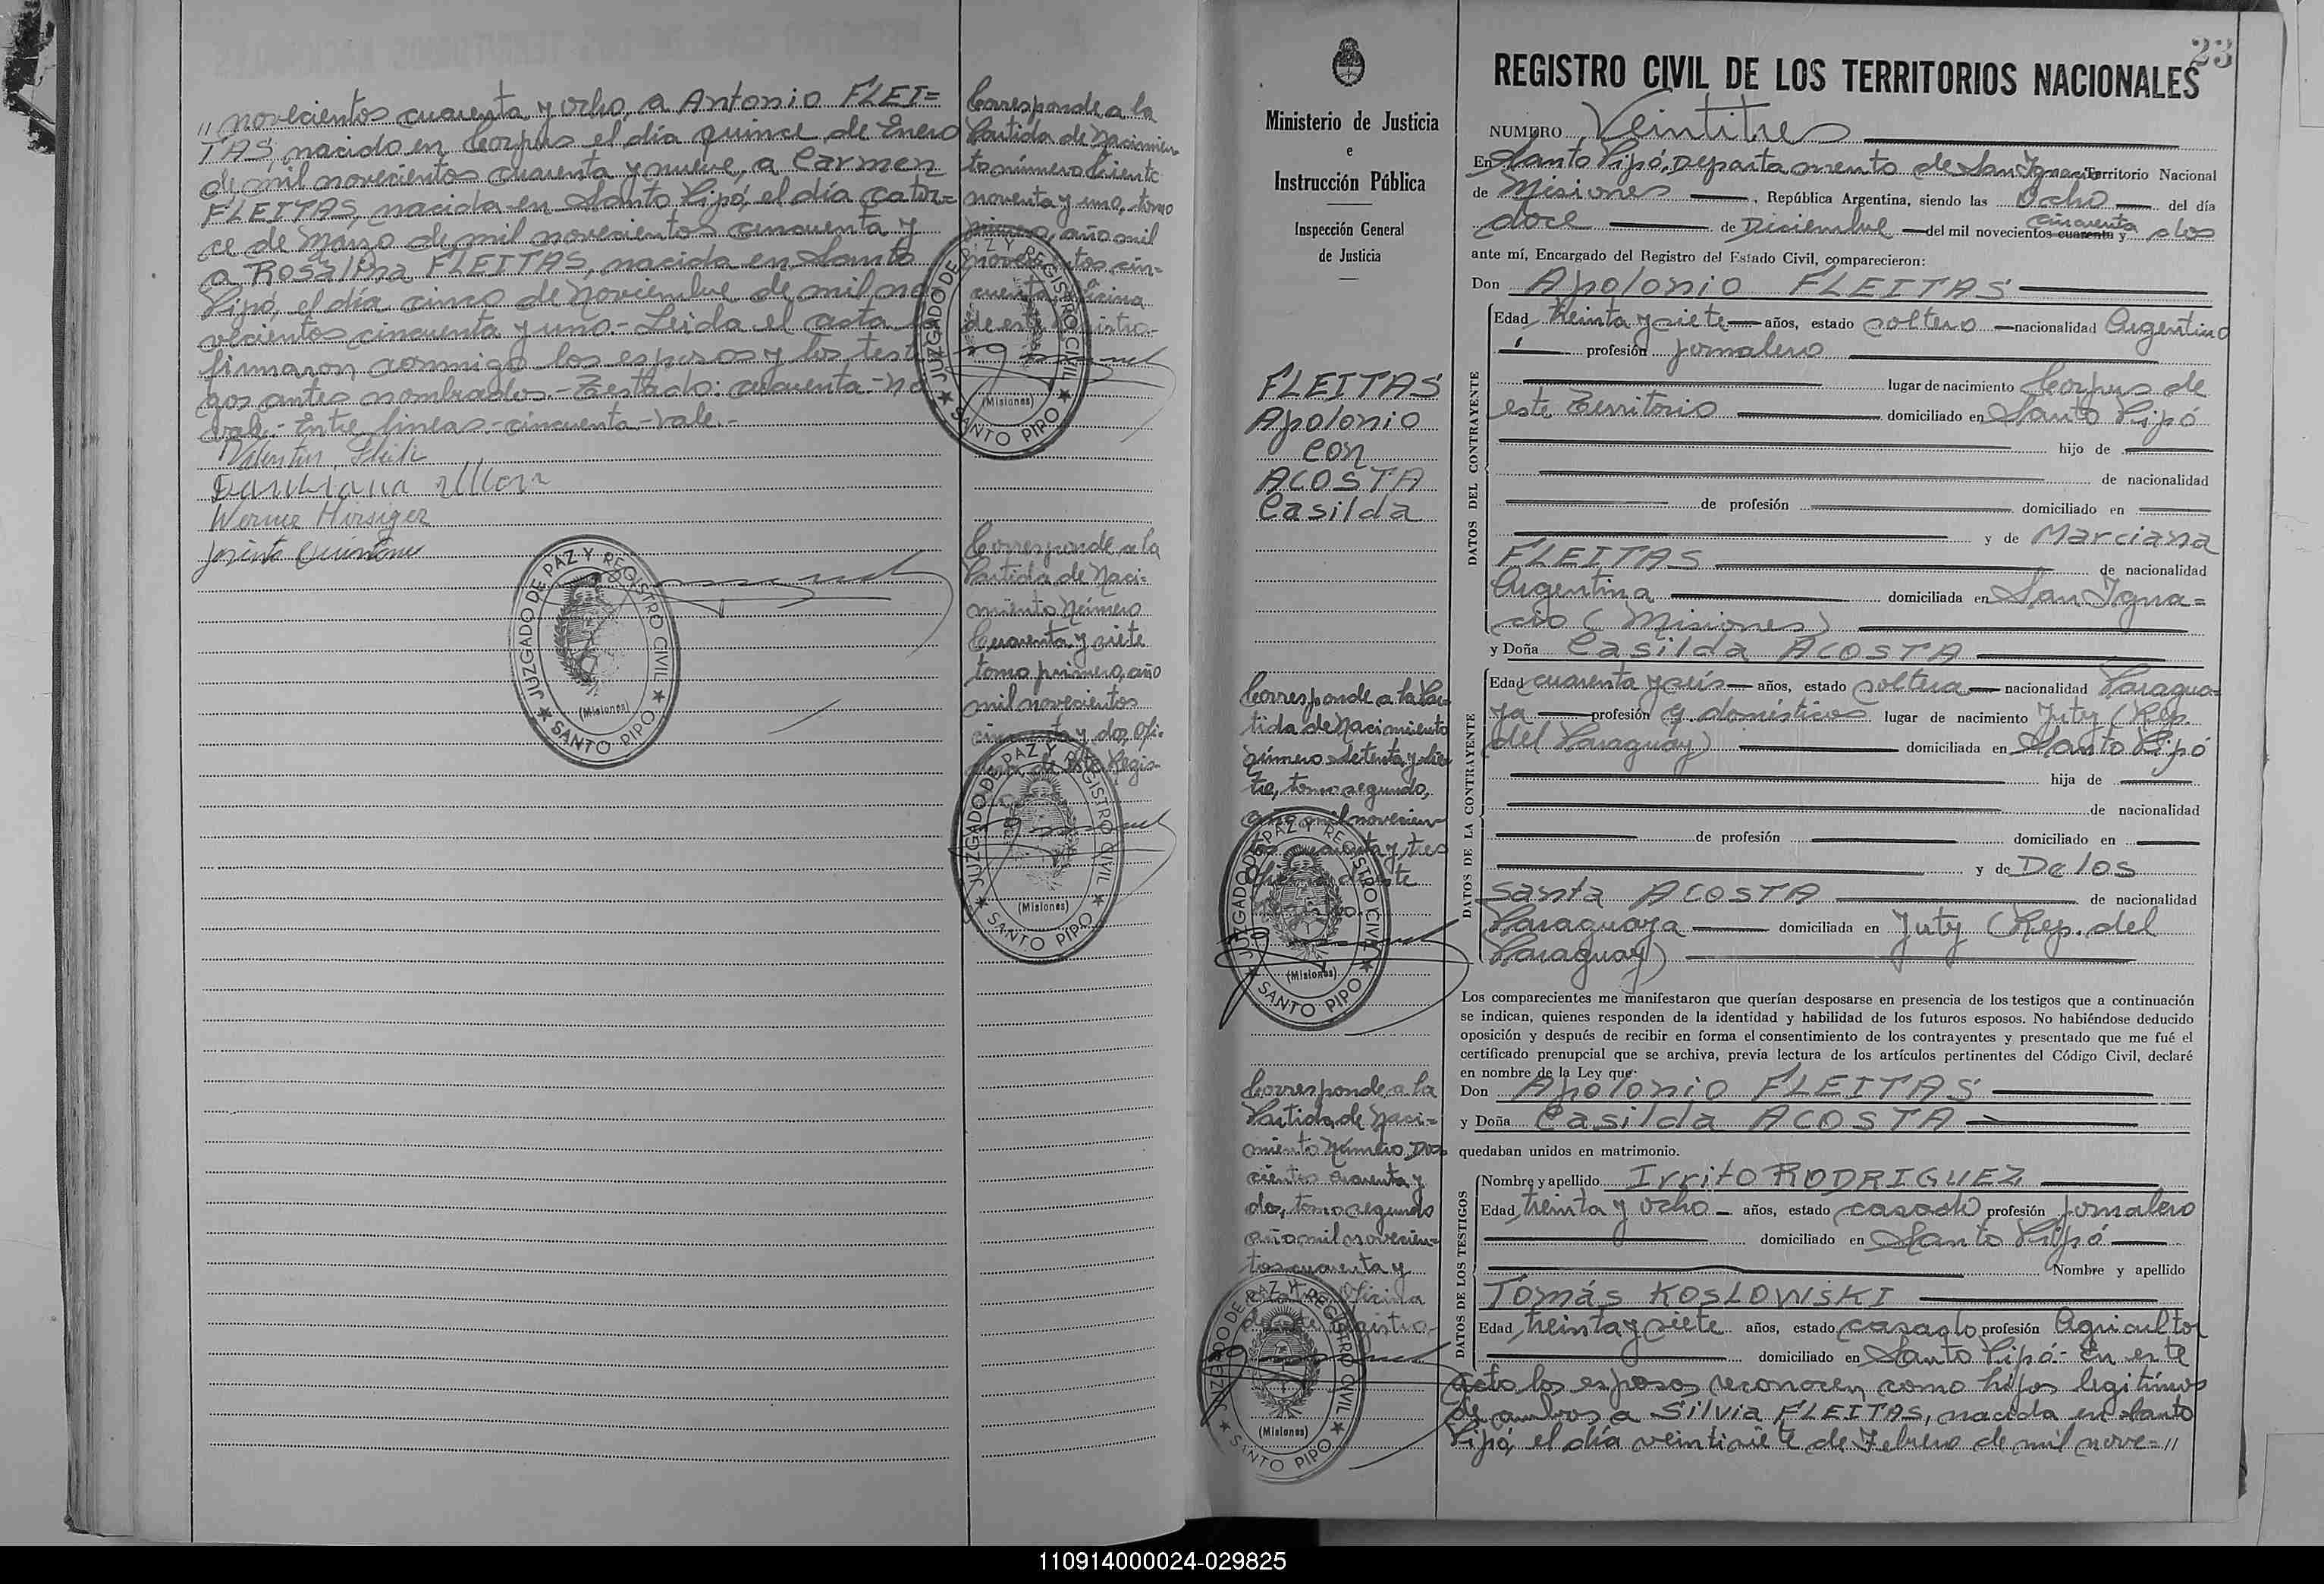 " novecientos cuarenta y ocho, a Antonio FLEI=
TAS, nacido en Corpus el día quince de Enero
de mil novecientos cuarenta y nueve, a Carmen
FLEITAS, nacida en Santo Pipó, el día cator=
ce de Marzo de mil novecientos cincuenta y
a Rosalina FLEITAS, nacida en Santo
Pipó, el día cinco de Noviembre de mil no
vecientos cincuenta y uno.- Leida el acta
firmaron conmigo los esposos y los testi
gos antes nombrados.- Testado: cuarenta - no
vale.- Entre lineas.- cincuenta - vale.-
Valentin
Werner Hirsiger
Jacinto Quintana
JUZGADO DE PAZ Y REGISTRO CIVIL
(Misiones)
SANTO PIPO
Corresponde a la
Partida de Nacimien-
to número Ciento
noventa y uno, tomo
primero, año mil
novecientos cin-
cuenta, Oficina
de este Registro.-
JUZGADO DE PAZ Y REGISTRO CIVIL
(Misiones)
SANTO PIPO
Corresponde a la
Partida de Naci=
miento Número
Cuarenta y siete
tomo primero, año
mil novecientos
cincuenta y dos, Ofi-
cina de este Regis-
JUZGADO DE PAZ Y REGISTRO CIVIL
(Misiones)
SANTO PIPO
Ministerio de Justicia
e
Instrucción Pública
Inspección General
de Justicia
FLEITAS
Apolonio
con
ACOSTA
Casilda
Corresponde a la Par-
tida de Nacimiento
número Setenta y sie-
te, tomo segundo,
año mil novecien-
tos cuarenta y tres
Oficina de este
JUZGADO DE PAZ Y REGISTRO CIVIL
(Misiones)
SANTO PIPO
Corresponde a la
Partida de Naci=
miento Número Dos
cientos cuarenta y
dos, tomo segundo
año mil novecien=
tos cuarenta y
Oficina
de este Registro-
JUZGADO DE PAZ Y REGISTRO CIVIL
(Misiones)
SANTO PIPO
23
REGISTRO CIVIL DE LOS TERRITORIOS NACIONALES
NUMERO Veintitres
En Santo Pipó, Departamento de San Ignacio Territorio Nacional
de Misiones, República Argentina, siendo las Ocho del día
doce de Diciembre del mil novecientos cuarenta y cincuenta dos
ante mí, Encargado del Registro del Estado Civil, comparecieron:
Don Apolonio FLEITAS
DATOS DEL CONTRAYENTE
Edad treinta y siete años, estado soltero nacionalidad Argentino
profesión jornalero
lugar de nacimiento Corpus de
este Territorio domiciliado en Santo Pipó
hijo de
de nacionalidad
de profesión domiciliado en
y de Marciana
FLEITAS de nacionalidad
Argentina domiciliada en San Igna=
cio (Misiones)
y Doña Casilda ACOSTA
DATOS DE LA CONTRAYENTE
Edad cuarenta y seis años, estado soltera nacionalidad Paragua=
ya profesión q. domésticos lugar de nacimiento Juty (Rep.
del Paraguay) domiciliada en Santo Pipó
hija de
de nacionalidad
de profesión domiciliado en
y de De los
Santa ACOSTA de nacionalidad
Paraguaya domiciliada en Juty (Rep. del
Paraguay)
Los comparecientes me manifestaron que querían desposarse en presencia de los testigos que a continuación
se indican, quienes responden de la identidad y habilidad de los futuros esposos. No habiéndose deducido
oposición y después de recibir en forma el consentimiento de los contrayentes y presentado que me fué el
certificado prenupcial que se archiva, previa lectura de los artículos pertinentes del Código Civil, declaré
en nombre de la Ley que:
Don Apolonio FLEITAS
y Doña Casilda ACOSTA
quedaban unidos en matrimonio.
DATOS DE LOS TESTIGOS
Nombre y apellido Irrito RODRIGUEZ
Edad treinta y ocho años, estado casado profesión jornalero
domiciliado en Santo Pipó
Nombre y apellido
Tomás KOSLOWSKI
Edad treinta y siete años, estado casado profesión Agricultor
domiciliado en Santo Pipó.- En este
acto los esposos reconocen como hijos legitimos
de ambos a Silvia FLEITAS, nacida en Santo
Pipó, el día veintisiete de Febrero de mil nove="
110914000024-029825